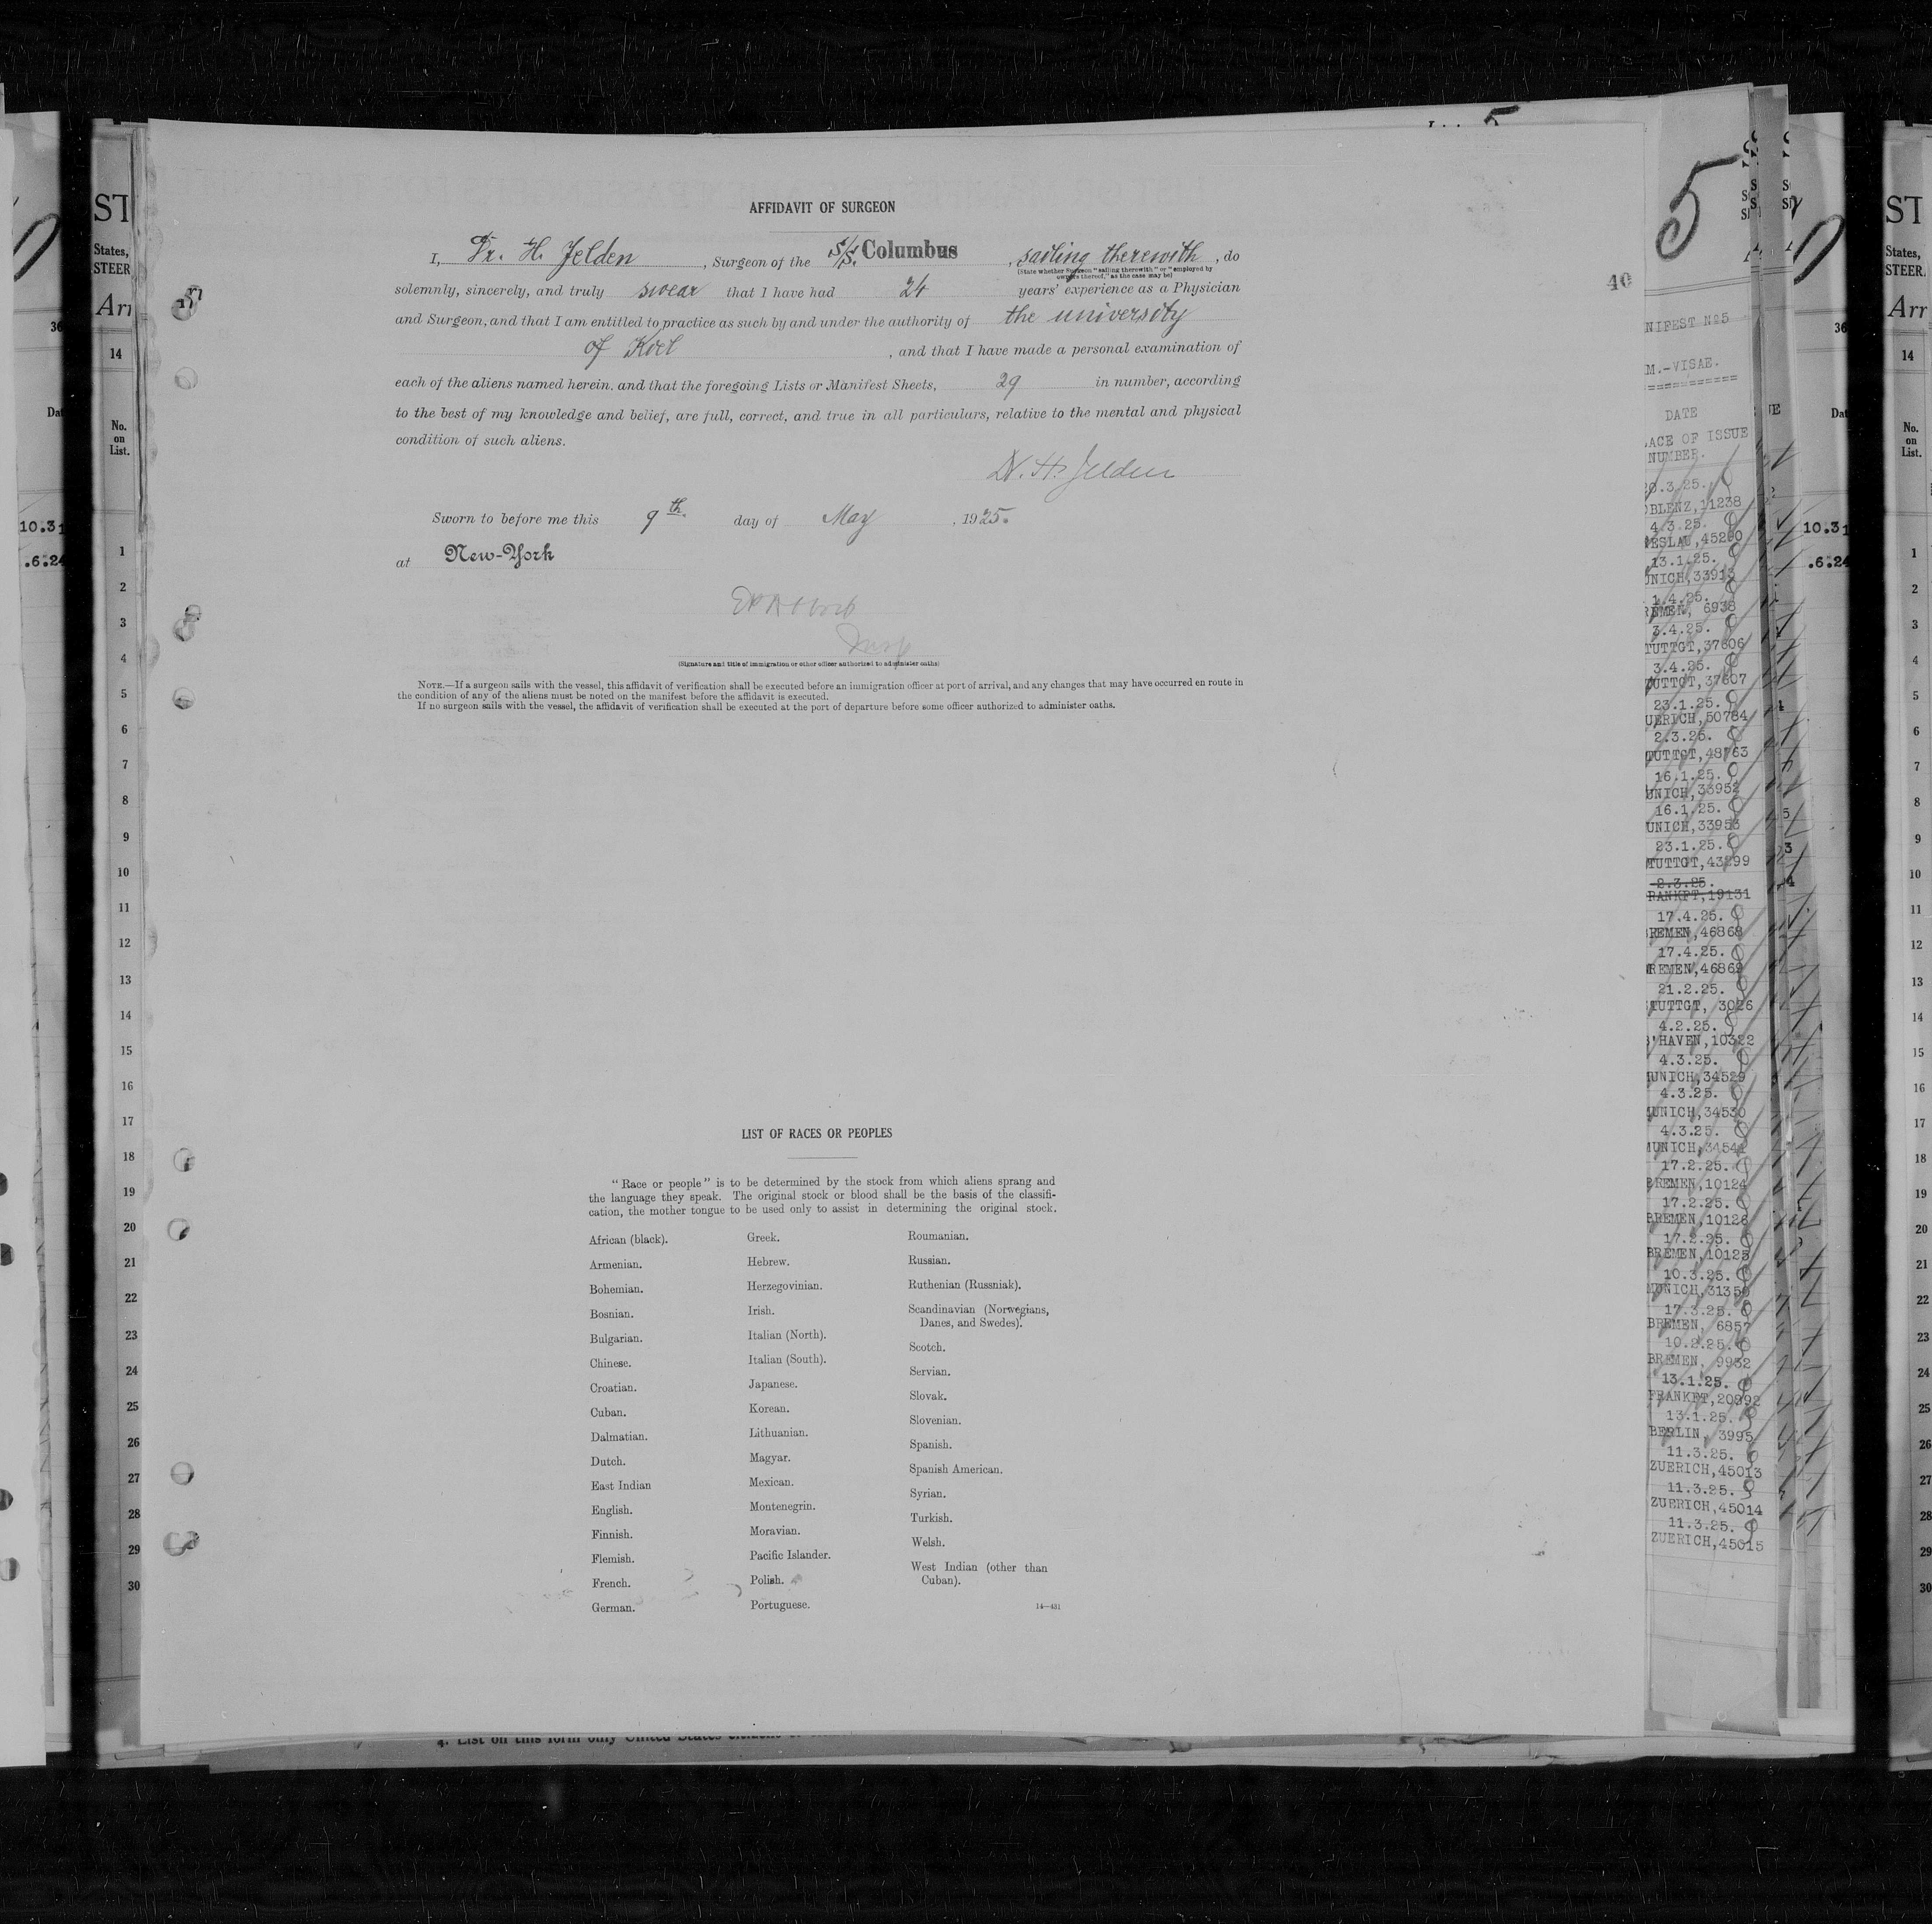 AFFIDAVIT OF SURGEON
I, Dr. H. Jelden, Surgeon of the S/S. Columbus, sailing therewith, do
(State whether Surgeon "sailing therewith" or "employed by
owners thereof," as the case may be)
solemnly, sincerely, and truly swear that I have had 24 years' experience as a Physician
and Surgeon, and that I am entitled to practice as such by and under the authority of the university
of Kiel, and that I have made a personal examination of
each of the aliens named herein, and that the foregoing Lists or Manifest Sheets, 29 in number, according
to the best of my knowledge and belief, are full, correct, and true in all particulars, relative to the mental and physical
condition of such aliens.
Dr. H. Jelden
Sworn to before me this 9th. day of May, 1925.
at New-York
Insp
(Signature and title of immigration or other officer authorized to administer oaths)
NOTE.—If a surgeon sails with the vessel, this affidavit of verification shall be executed before an immigration officer at port of arrival, and any changes that may have occurred en route in
the condition of any of the aliens must be noted on the manifest before the affidavit is executed.
If no surgeon sails with the vessel, the affidavit of verification shall be executed at the port of departure before some officer authorized to administer oaths.
LIST OF RACES OR PEOPLES
"Race or people" is to be determined by the stock from which aliens sprang and
the language they speak. The original stock or blood shall be the basis of the classifi-
cation, the mother tongue to be used only to assist in determining the original stock.
African (black).
Armenian.
Bohemian.
Bosnian.
Bulgarian.
Chinese.
Croatian.
Cuban.
Dalmatian.
Dutch.
East Indian
English.
Finnish.
Flemish.
French.
German.
Greek.
Hebrew.
Herzegovinian.
Irish.
Italian (North).
Italian (South).
Japanese.
Korean.
Lithuanian.
Magyar.
Mexican.
Montenegrin.
Moravian.
Pacific Islander.
Polish.
Portuguese.
Roumanian.
Russian.
Ruthenian (Russniak).
Scandinavian (Norwegians,
Danes, and Swedes).
Scotch.
Servian.
Slovak.
Slovenian.
Spanish.
Spanish American.
Syrian.
Turkish.
Welsh.
West Indian (other than
Cuban).
14—431
40
5
NIFEST No5
M.-VISAE.
DATE
ACE OF ISSUE
NUMBER.
20.3.25.
BLENZ,11238
4.3.25.
ESLAU,45290
13.1.25.
NICH,33913
1.4.25.
EMEN, 6938
3.4.25.
TUTTGT,37606
3.4.25.
UTTGT,37607
23.1.25.
UERICH,50784
2.3.25.
TUTTGT,48763
16.1.25.
UNICH,33952
16.1.25.
UNICH,33953
23.1.25.
TUTTGT,43299
2.3.25.
RANKFT,19131
17.4.25.
REMEN,46868
17.4.25.
REMEN,46869
21.2.25.
TUTTGT, 3026
4.2.25.
'HAVEN,10322
4.3.25.
MUNICH,34529
4.3.25.
MUNICH,34530
4.3.25.
MUNICH,34541
17.2.25.
BREMEN,10124
17.2.25.
BREMEN,10126
17.2.25.
BREMEN,10125
10.3.25.
MUNICH,31350
17.3.25.
BREMEN, 6857
10.2.25.
BREMEN, 9932
13.1.25.
FRANKFT,20392
13.1.25.
BERLIN, 3995
11.3.25.
ZUERICH,45013
11.3.25.
ZUERICH,45014
11.3.25.
ZUERICH,45015
ST
States,
STEER
Arr
36
14
Dat
No.
on
List.
10.31
.6.24
1
2
3
4
5
6
7
8
9
10
11
12
13
14
15
16
17
18
19
20
21
22
23
24
25
26
27
28
29
30
ST
States,
STEER
Arr
36
14
Dat
No.
on
List.
10.31
.6.24
1
2
3
4
5
6
7
8
9
10
11
12
13
14
15
16
17
18
19
20
21
22
23
24
25
26
27
28
29
30
4. List on this form only United States citizens